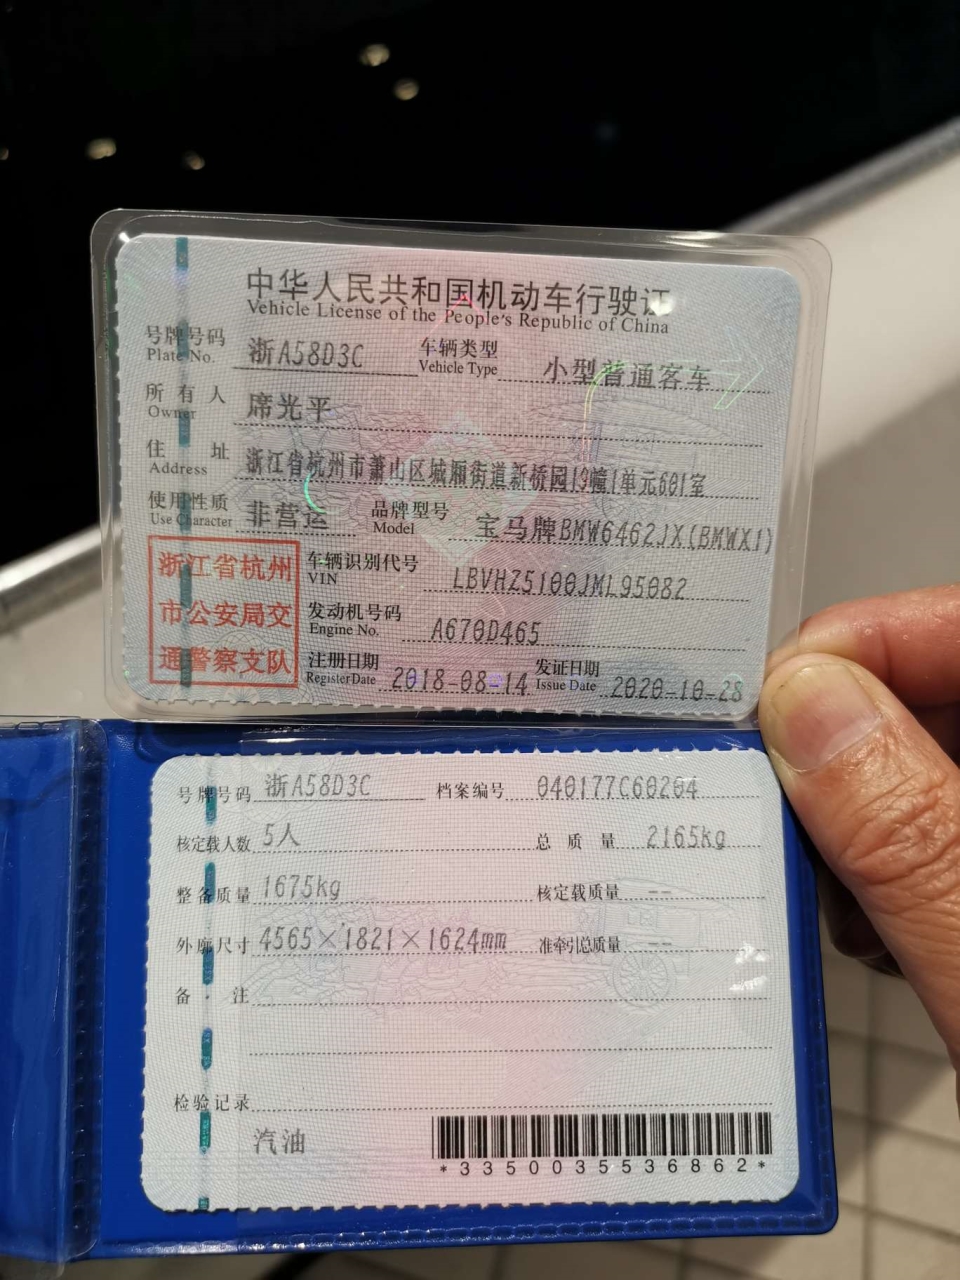 中华人民共和国机动车行驶证
Vehicle License of the People's Republic of China
号牌号码 浙A58D3C 车辆类型 小型普通客车
Plate No. Vehicle Type
所有人 席光平
Owner
住址 浙江省杭州市萧山区城厢街道新桥园19幢1单元601室
Address
使用性质 非营运 品牌型号 宝马牌BMW6462JX(BMWX1)
Use Character Model
浙江省杭州
市公安局交
通警察支队
车辆识别代号 LBVHZ5100JML95082
VIN
发动机号码 A670D465
Engine No.
注册日期 2018-08-14 发证日期 2020-10-28
Register Date Issue Date
号牌号码 浙A58D3C 档案编号 040177C60204
核定载人数 5人 总质量 2165kg
整备质量 1675kg 核定载质量 --
外廓尺寸 4565×1821×1624mm 准牵引总质量 --
备注
检验记录
汽油
*3350035536862*